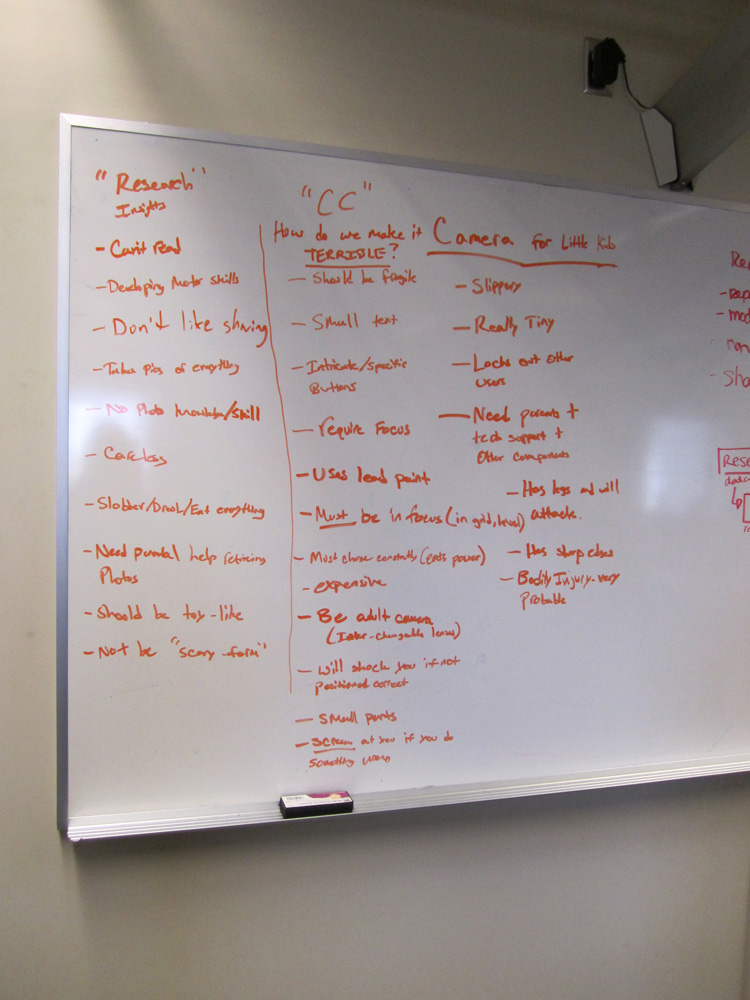 "Research"
Insights
- Can't read
- Developing Motor skills
- Don't like sharing
- Takes pics of everything
- No Photo knowledge/skill
- Careless
- Slobber/Drool/Eat everything
- Need parental help retrieving
Photos
- Should be toy-like
- Not be "scary-form"
"CC"
How do we make it
TERRIBLE?
Camera for Little Kids
- Should be fragile
- Small text
- Intricate/specific
Buttons
- require Focus
- Uses lead paint
- Must be in focus (in grid, level)
- Must charge constantly (eats power)
- expensive
- Be adult camera
(Inter-changeable lenses)
- will shock you if not
positioned correct
- small parts
- scream at you if you do
something wrong
- Slippery
- Really Tiny
- Locks out other
users
- Need parents +
tech support +
Other components
- Has legs and will
attack.
- Has sharp edges
- Bodily Injury-very
Probable